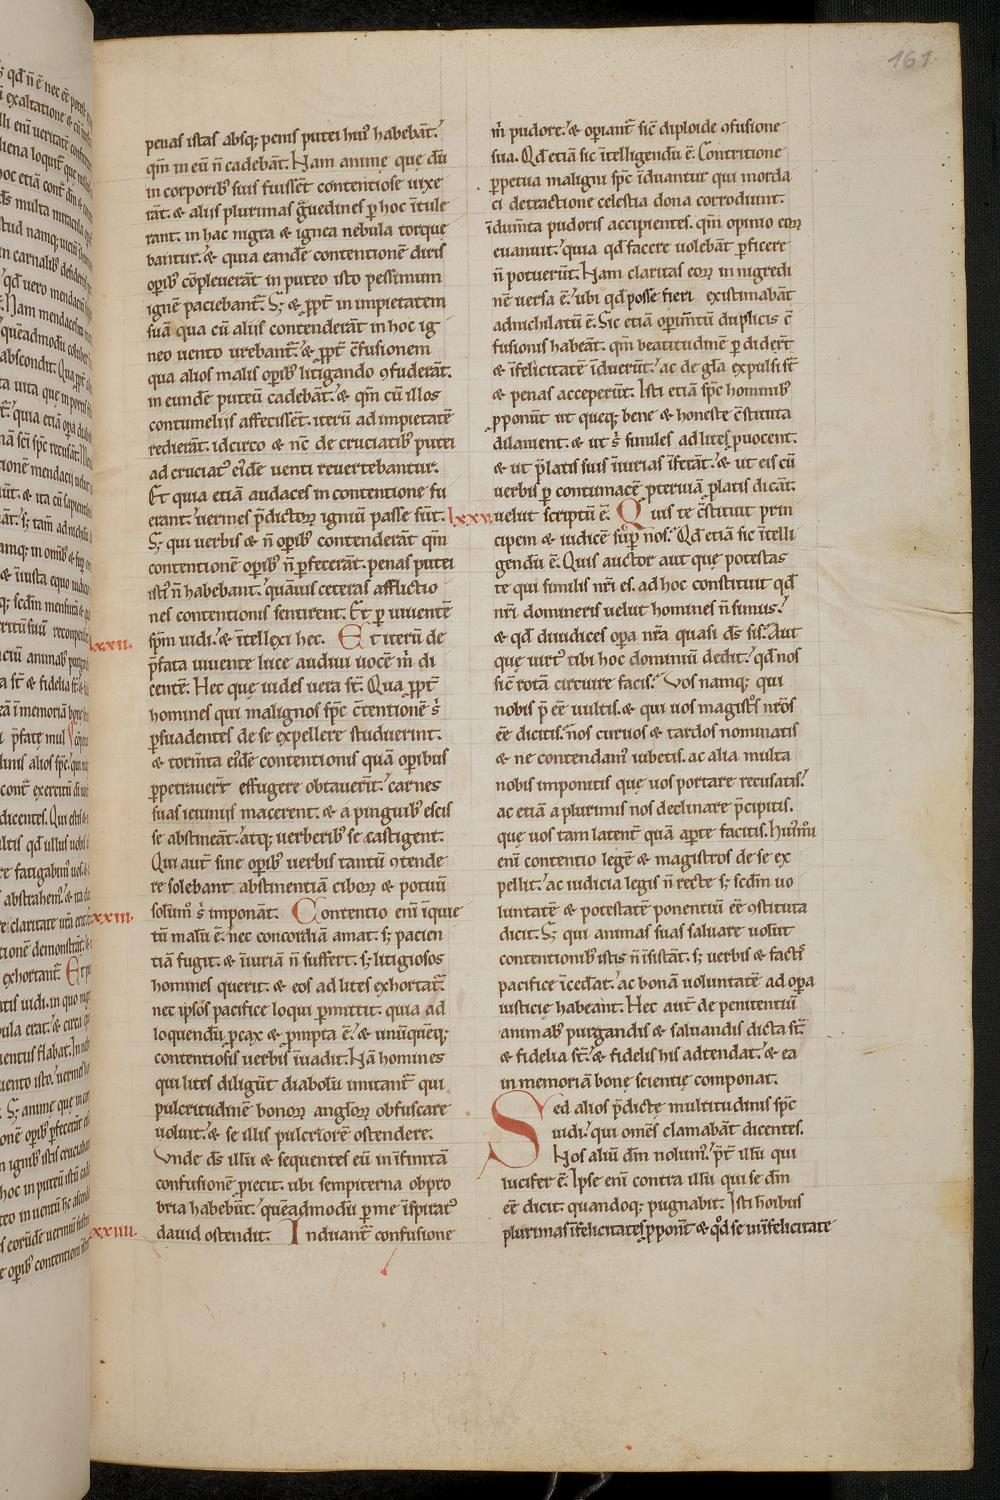 161
penas istas absq; penis putei hui᷒ habebāt.
qm̄ in eū n̄ cadebāt. Nam animę quę dū
in corporib᷒ suis fuissēt contentiose uixe
rāt. & aliis plurimas gͣuedines ꝑ hoc ītule
rant. in hac nigra & ignea nebula torque
bantur. & quia eandē contentionē diris
opib᷒ cōpleuerāt in puteo isto pessimum
ignē paciebant᷑. S; & ꝓpt̄ in impietatem
suā qua cū aliis contenderāt in hoc ig
neo uento urebant᷑. & ꝓpt̄ c̄fusionem
qua alios malis opib᷒ litigando ꝯfuderāt.
in eundē puteū cadebāt. & qm̄ cū illos
contumeliis affecissēt. iterū ad impietatē
redierāt. idcirco & nc̄ de cruciatib᷒ putei
ad cruciat᷒ ei᷒dē uenti reuertebantur.
Et quia etiā audaces in contentione fu
erant. uermes p̄dictoꝝ igniū passę sūt.
S; qui uerbis & n̄ opib᷒ contenderāt qm̄
contentionē opib᷒ n̄ ꝑfecerāt. penas putei
isti᷒ n̄ habebant. quāuis ceteras afflictio
nes contentionis sentirent. Et ꝑ uiuentē
lxxii.
sp̄m uidi. & ītellexi hec. Et iterū de
p̄fata uiuente luce audiui uocē m̄ di
centē. Hec quę uides uera st̄. Qua ꝓpt̄
homines qui malignos sp̄c c̄tentionē s̄
ꝑsuadentes de se expellere studuerint.
& torm̄ta ei᷒dē contentionis quā opibus
ꝑpetrauer̄t effugere obtauerīt. carnes
suas ieiuniis macerent. & a pinguib᷒ escis
se abstineāt. atq; uerberib᷒ se castigent.
Qui aut̄ sine opib᷒ uerbis tantū ꝯtende
re solebant abstinentiā ciboꝝ & potuū
lxxiii.
solum᷒ s̄ imponāt. Contentio eni īique
tū malū ē. nec concordiā amat. s; pacien
tiā fugit. & īiuriā n̄ suffert. s; litigiosos
homines querit. & eos ad lites exhortat᷑.
nec ipsos pacifice loqui ꝑmittit. quia ad
loquendū ꝓcax & ꝓmpta ē. & unūquēq;
contentiosis uerbis īuadit. Nā homines
qui lites diligūt diabolū imitant᷑ qui
pulcritudinē bonoꝝ angl̄oꝝ obfuscare
uoluit. & se illis pulcriorē ostendere.
Vnde ds̄ illū & sequentes eū in īfinitā
confusionē ꝓiecit. ubi sempiterna obpro
bria habebūt. quēadmodū ꝑ me īspirat᷒
lxxiiii.
dauid ostendit. Induant᷑ confusione
m̄ pudore. & opiant᷑ sic̄ diploide ꝯfusione
sua. Qd̄ etiā sic ītelligendū ē. Contritione
ꝑpetua maligni sp̄c īduantur qui morda
ci detractione celestia dona corrodiunt.
īdum̄ta pudoris accipientes. qm̄ opinio eoꝝ
euanuit. quia qd̄ facere uolebāt ꝑficere
n̄ potuerūt. Nam claritas eoꝝ in nigredi
nē uersa ē. ubi qd̄ posse fieri existimabāt
adnichilatū ē. Sic etiā opim̄tū duplicis c̄
fusionis habeāt. qm̄ beatitudinē ꝑdider̄t
& īfelicitatē īduerūt. ac de gl̄a expulsi st̄
& penas acceperūt. Isti etiā sp̄c hominib᷒
ꝓponūt ut queq; bene & honeste c̄stituta
dilanient. & ut s̄ similes ad lites ꝓuocent.
& ut p̄latis suis īiurias īferāt. & ut eis cū
uerbis ꝑ contumacē ꝓteruiā ꝓlatis dicāt.
lxxv.
uelut scriptū ē. Quis te c̄stituit prin
cipem & iudicē sup̄ nos. Qd̄ etiā sic ītelli
gendū ē. Quis auctor aut quę potestas
te qui similis nr̄i es. ad hoc constituit qd̄
nr̄i domineris uelut hominēs n̄ simus.
& qd̄ diiudices opa nr̄a quasi ds̄ sis. Aut
quę uirt᷒ tibi hoc dominiū dedit. qd̄ nos
sic̄ rotā circuire facis. Vos namq; qui
nobis p̄ēē uultis. & qui uos magistᷤ nr̄os
ēē dicitis. nos curuos & tardos nominatis
& ne contendam᷒ iubetis. ac alia multa
nobis imponitis quę uos portare recusatis.
ac etiā a plurimis nos declinare p̄cipitis.
que uos tam latent̄ quā apte facitis. Hui᷒m̄i
eni contentio legē & magistros de se ex
pellit. ac iudicia legis n̄ recte s; scd̄m uo
luntatē & potestatē ponentiū ēē ꝯstituta
dicit. S; qui animas suas saluare uolūt
contentionib᷒ istis n̄ īsistāt. s; uerbis & factᷤ
pacifice īcedāt. ac bonā uoluntatē ad opa
iusticię habeant. Hec aut̄ de penitentiū
animab᷒ purgandis & saluandis dicta st̄
& fidelia st̄. & fidelis his adtendat. & ea
in memoriā bonę scientię componat.
Sed alios p̄dictę multitudinis sp̄c
uidi. qui om̄s clamabāt dicentes.
Nos aliū dn̄m nolum᷒. p̄t̄ illū qui
lucifer ē. Ipse eni contra illū qui se dn̄m
ēē dicit. quandoq; pugnabit. Isti hoibus
plurimas īfelicitates ꝓponūt & qd̄ se in īfelicitate